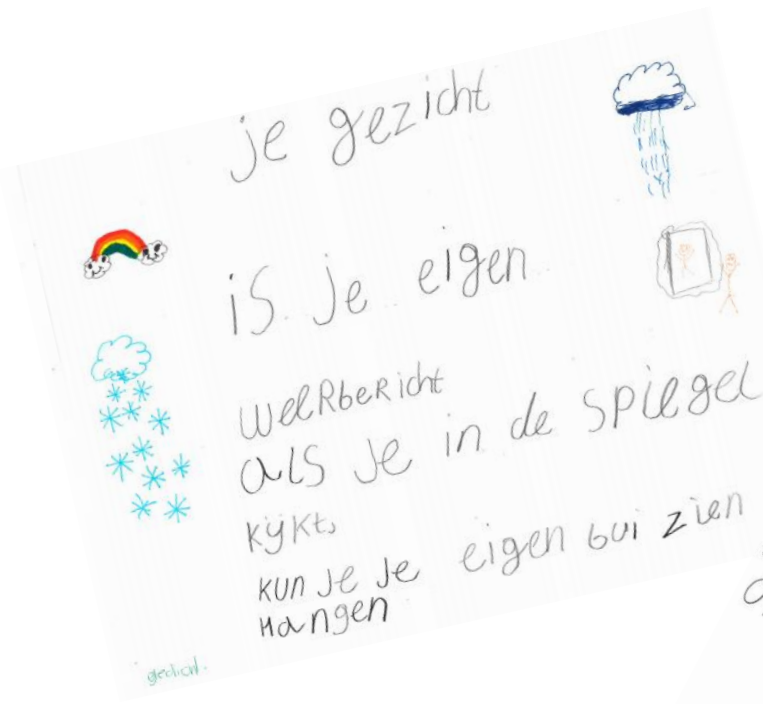 je gezicht
is je eigen
weeRbeRicht
als je in de spiegel
kijkt,
kun je je eigen bui zien
Hangen
gedicht.